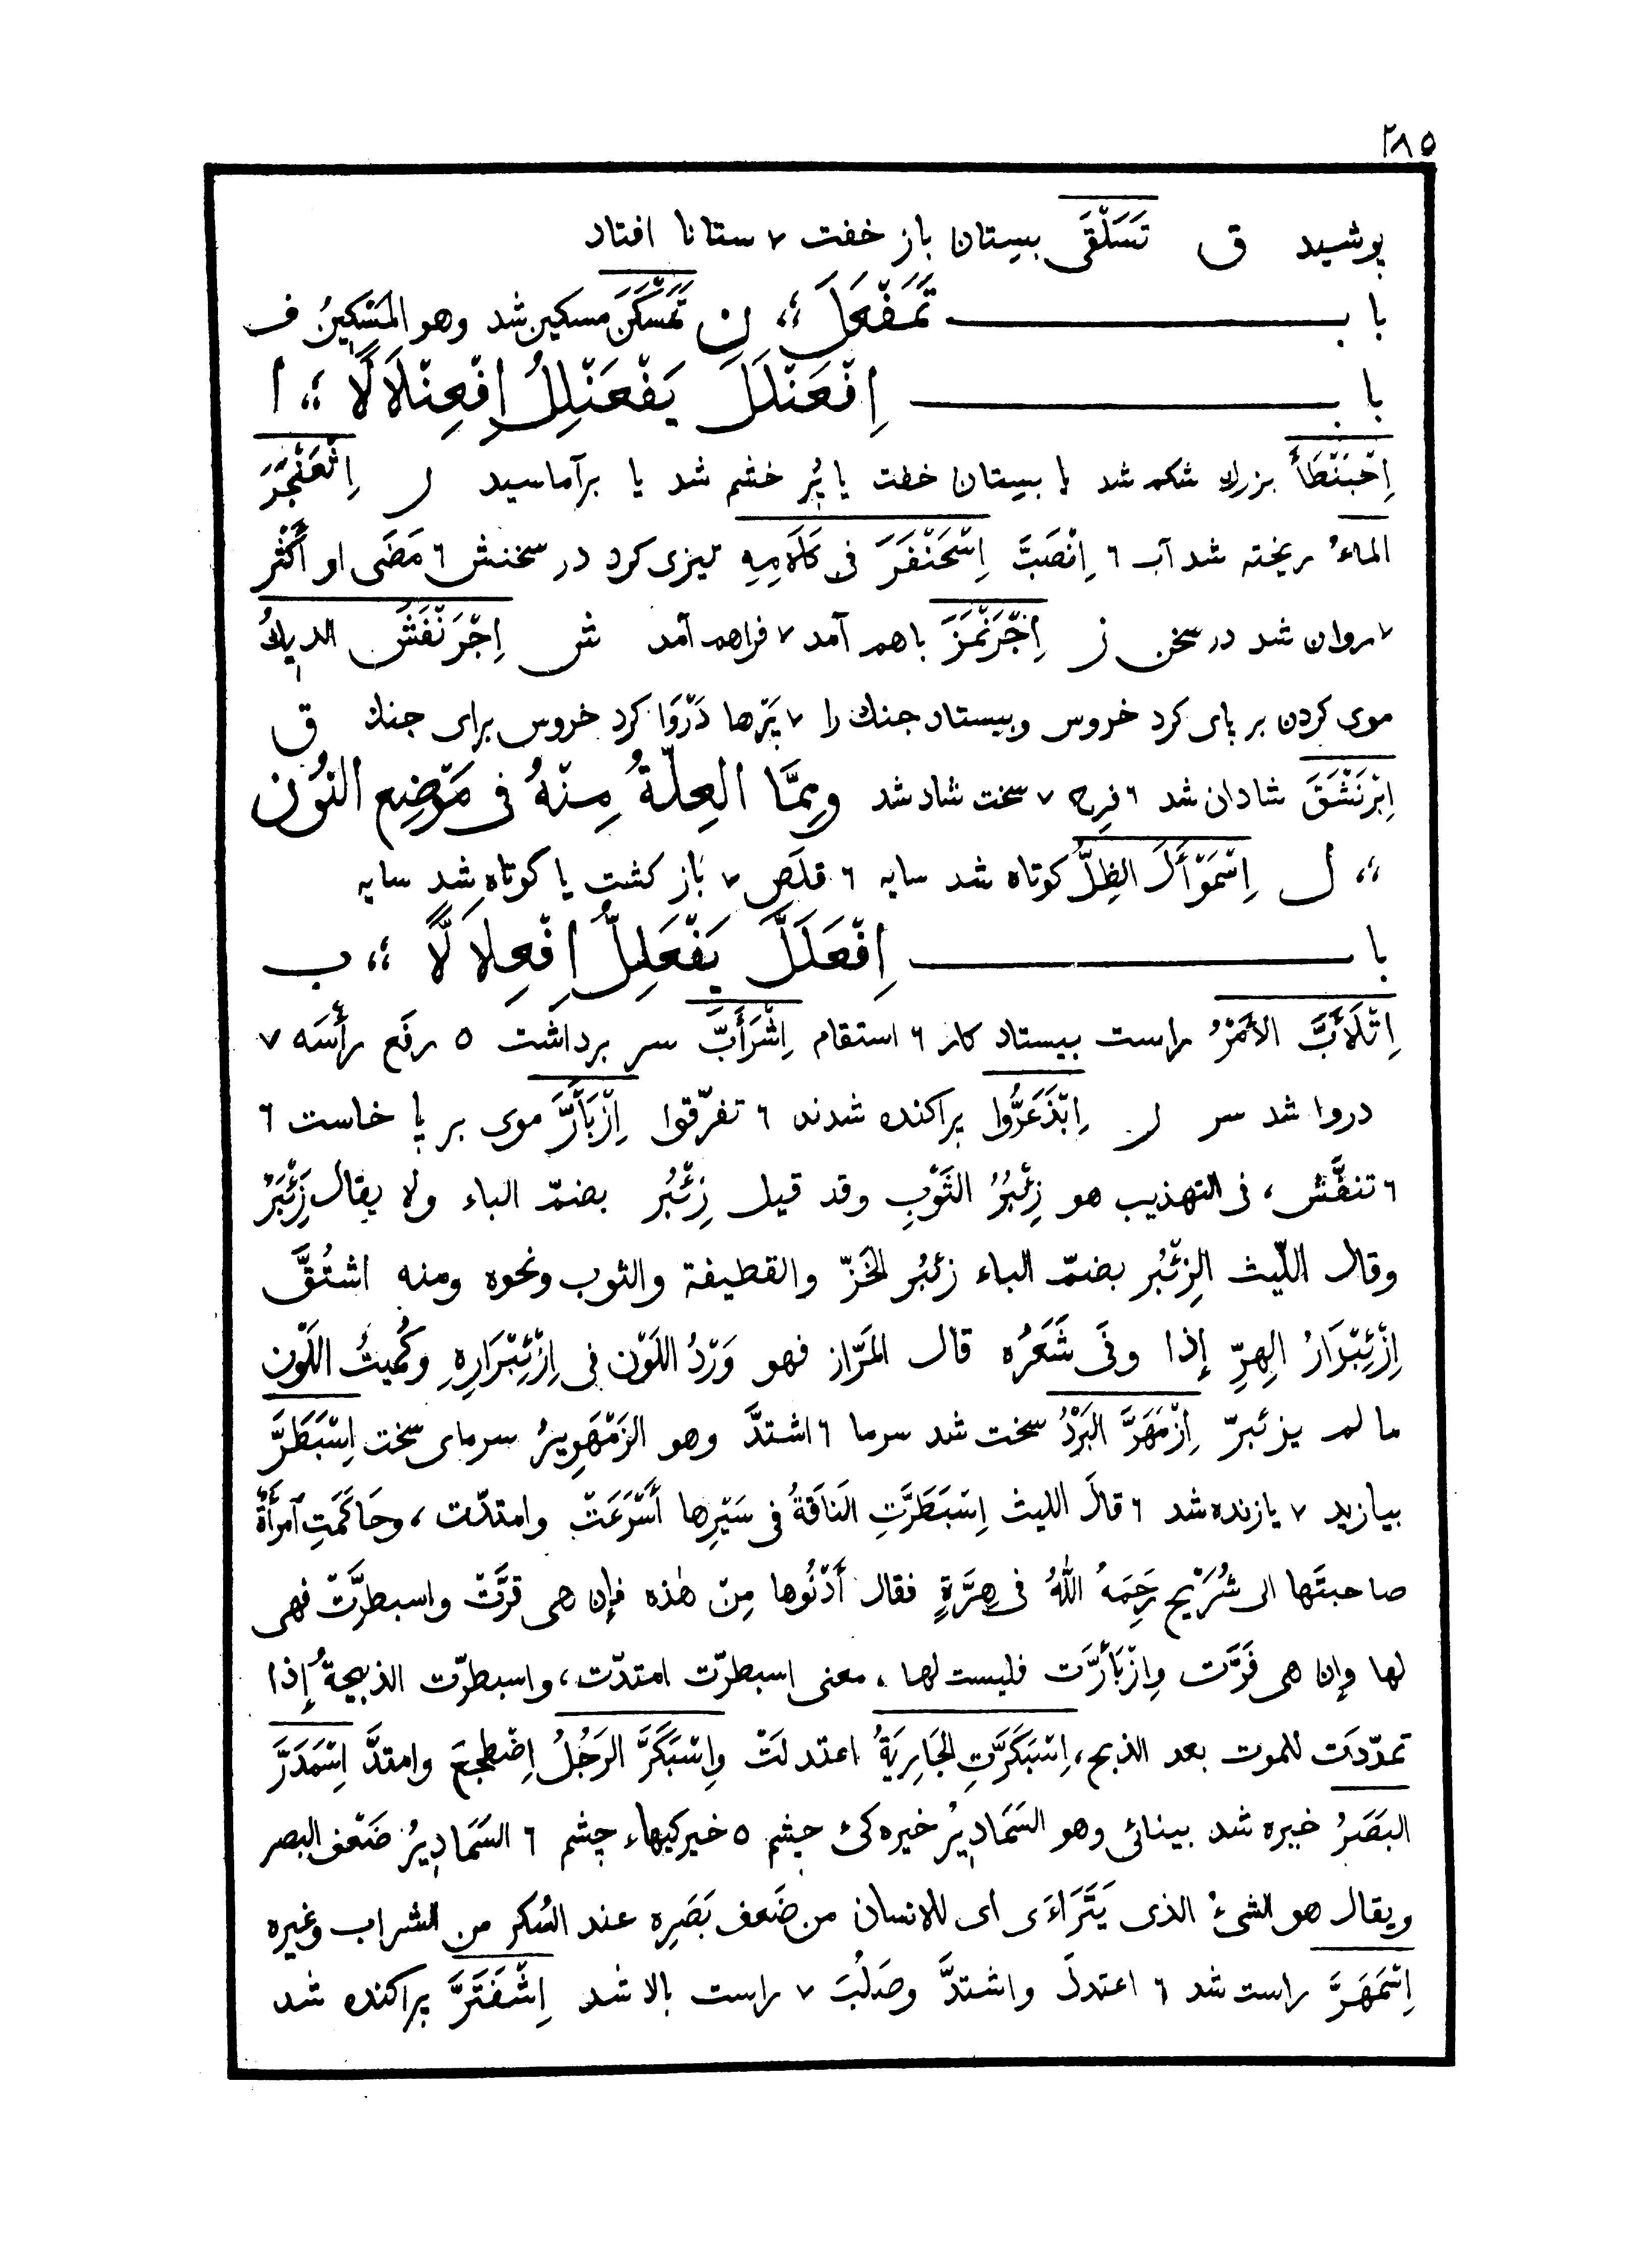 ٢٨٥
پوشید ق تَسَلْقَی بستان باز خفت ٧ ستانا افتاد
با ب تَمَفْعَلَ ،، ن تَمَسْكَنَ مسکین شد وهو المِسْكِينُ ف
با ب اِفْعَنْلَلَ يَفْعَنْلِلُ اِفْعِنْلَالًا ،، ا
اِحْبَنْطَأَ بزرك شكم شد یا بستان خفت یا پُر خشم شد یا برآماسید ر اِثْعَنْجَرَ
الماءُ ریخته شد آب ٦ اِنْصَبَّ اِسْحَنْفَرَ فی كَلَامِهِ تیزی کرد در سخنش ٦ مَضَى او أَكْثَر
٧ روان شد در سخن ز اِجْرَنْمَزَ باهم آمد ٧ فراهم آمد ش اِجْرَنْفَشَ الديكُ
موی کردن بر پای کرد خروس وبیستاد جنك را ٧ پَرّها دَرْوَا کرد خروس برای جنك ق
اِبْرَنْشَقَ شادان شد ٦ فرِح ٧ سخت شاد شد ومِمَّا العِلّةُ مِنْهُ فی مَوْضِعِ النُّون
،، ل اِسْمَوْأَلَ الظِلُّ كوتاه شد سایه ٦ قلَص ٧ باز کشت یا کوتاه شد سایه
با ب اِفْعَلَلَّ يَفْعَلِلُّ اِفْعِلَالًّا ،، ب
اِتْلَأَبَّ الأَمْرُ راست بیستاد کار ٦ استقام اِشْرَأَبَّ سر برداشت ٥ رفَع رأسَه ٧
دروا شد سر ر اِبْذَعَرُّوا پراکنده شدند ٦ تفرّقوا اِزْبَأَرَّ موی بر پا خاست ٦
٦ تنفّش ، فی التهذیب هو زِئْبِرُ الثَّوْبِ وقد قیل زِئْبُر بضمّ الباء ولا یقال زِئْبَرٌ
وقال اللّیث الزِئْبُر بضمّ الباء زئبُر الخَزّ والقطیفة والثوب ونحوه ومنه اشتُقَّ
اِزْئِبْرَارُ الهِرِّ إذا وفَى شَعَرُه قال المَرّار فهو وَرْدُ اللَوْن فی اِزْئِبْرَارِهِ وكُمَيتُ اللَوْن
ما لم یزئبرّ اِزْمَهَرَّ البَرْدُ سخت شد سرما ٦ اشتدَّ وهو الزَمْهَرِيرُ سرمای سخت اِسْبَطَرَّ
بیازید ٧ یازنده شد ٦ قالَ اللیث اِسْبَطَرَّتِ النَاقَةُ فی سَيْرِها أَسْرَعَتْ وامتدّت ، وحَاكَمَتِ آمرَأَةٌ
صاحبتَها الی شُرَيْحٍ رَحِمَهُ اللهُ فی هِرَّةٍ فقال أَدْنُوها مِنْ هٰذه فإن هی قرَّتْ واسبطرَّتْ فهی
لها وإن هی فَرَّت وِازْبَأَرَّت فلیست لها ، معنی اسبطرّت امتدّت ، واسبطرّت الذبیحةُ إذا
تمدّدَت للموت بعد الذبح ، اِسْبَكَرَّتِ الجَارِيَةُ اعتدلَتْ واِسْبَكَرَّ الرَجُلُ اِضْطَجَعَ وامتدَّ اِسْمَدَرَّ
البَصَرُ خیره شد بینائی وهو السَمَادِيرُ خیره کیُ چشم ٥ خیرکیهاء چشم ٦ السَمَادِيرُ ضَعْف البصر
ویقال هو الشیءُ الذی يَتَرَاءَى ای للانسان من ضَعف بَصَرِهِ عند السُكر من الشراب وغیره
اِسْمَهَرَّ راست شد ٦ اعتدلَ واشتدَّ وصَلُبَ ٧ راست بالا شد اِشْفَتَرَّ پراکنده شد